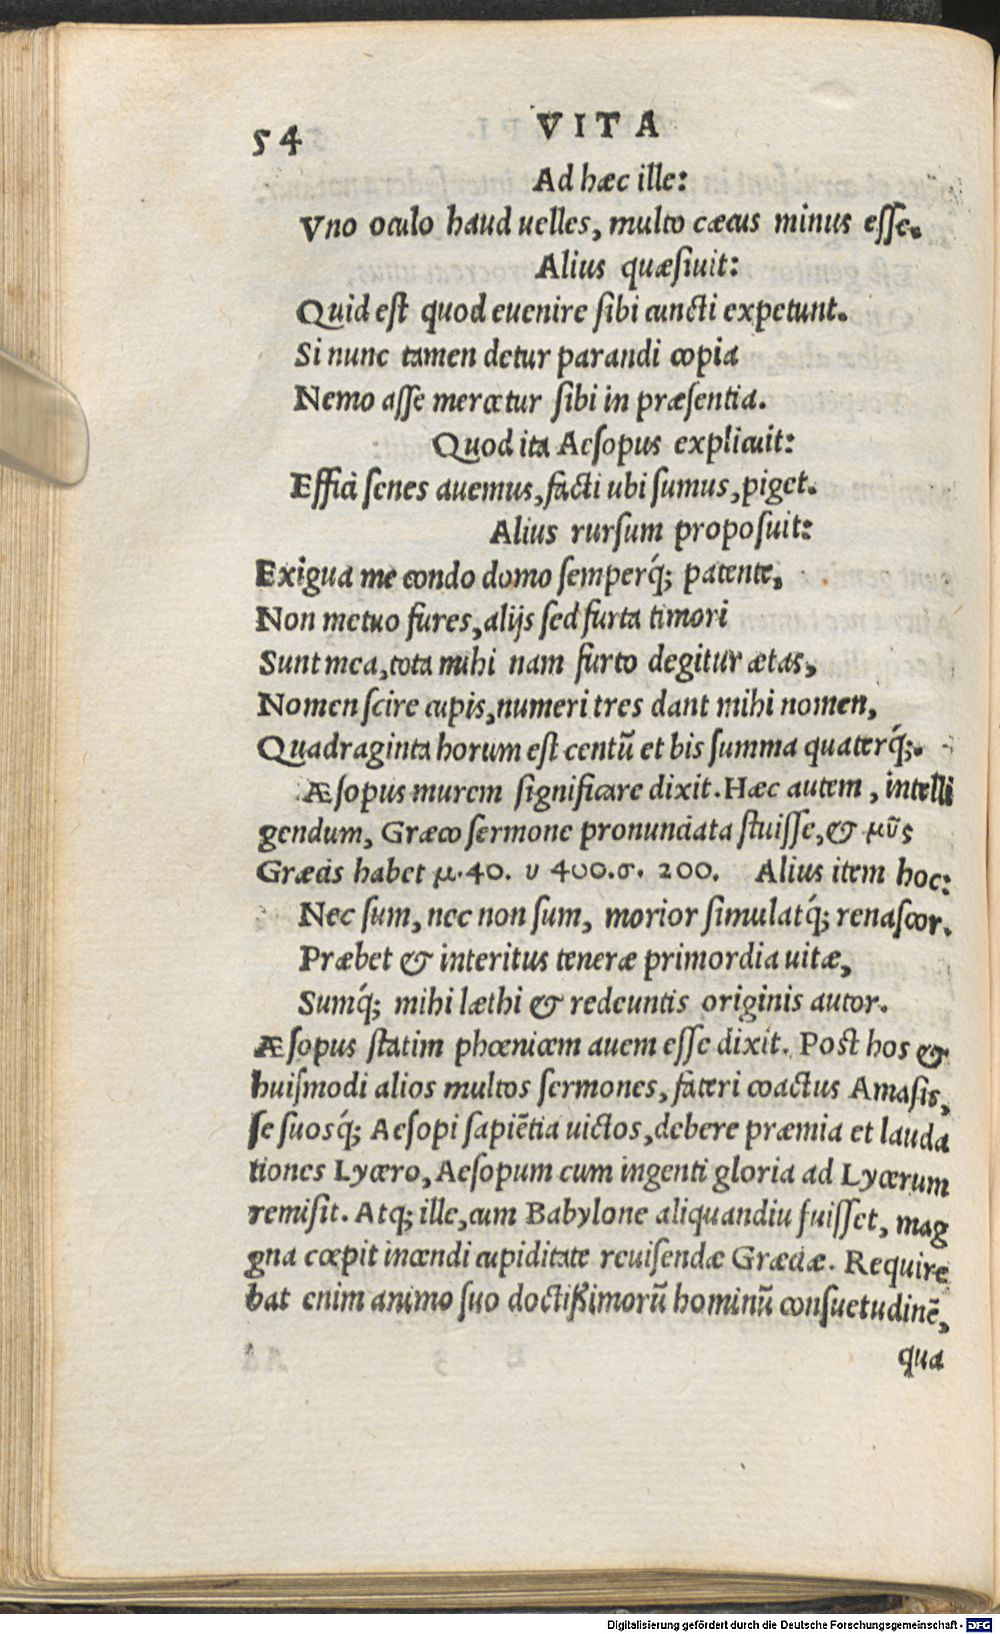 54 VITA
Ad hæc ille:
Vno oculo haud uelles, multo cæcus minus esse.
Alius quæsiuit:
Quid est quod euenire sibi cuncti expetunt.
Si nunc tamen detur parandi copia
Nemo asse mercetur sibi in præsentia.
Quod ita Aesopus explicuit:
Effici senes auemus, facti ubi sumus, piget.
Alius rursum proposuit:
Exigua me condo domo semperq́; patente,
Non metuo fures, alijs sed furta timori
Sunt mea, tota mihi nam furto degitur ætas,
Nomen scire cupis, numeri tres dant mihi nomen,
Quadraginta horum est centũ et bis summa quaterq́;.
Æsopus murem significare dixit. Hæc autem, intelli
gendum, Græco sermone pronunciata fuisse, & μῦς
Græcis habet μ. 40. υ 400. σ. 200. Alius item hoc:
Nec sum, nec non sum, morior simulatq́; renascor.
Præbet & interitus teneræ primordia uitæ,
Sumq́; mihi læthi & redeuntis originis autor.
Æsopus statim phœnicem auem esse dixit. Post hos &
huismodi alios multos sermones, fateri coactus Amasis,
se suosq́; Aesopi sapiẽtia uictos, debere præmia et lauda
tiones Lycero, Aesopum cum ingenti gloria ad Lycerum
remisit. Atq; ille, cum Babylone aliquandiu fuisset, mag
gna cœpit incendi cupiditate reuisendæ Græciæ. Require
bat enim animo suo doctißimorũ hominũ consuetudinẽ,
qua
Digitalisierung gefördert durch die Deutsche Forschungsgemeinschaft - DFG